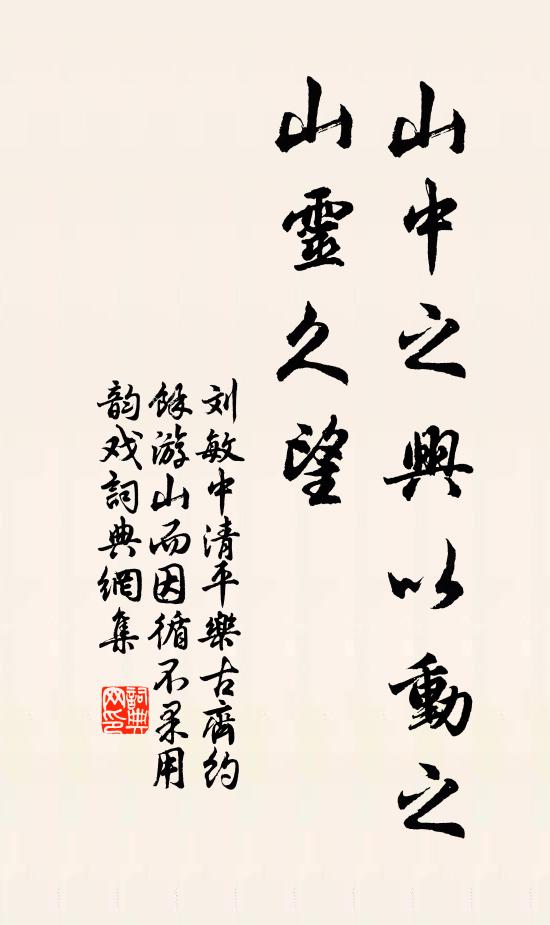 山中之興以動之
山靈久望
刘敏中清平樂古齋約
餘游山而因循不果用
韵戏詞典網集
詞典
网印